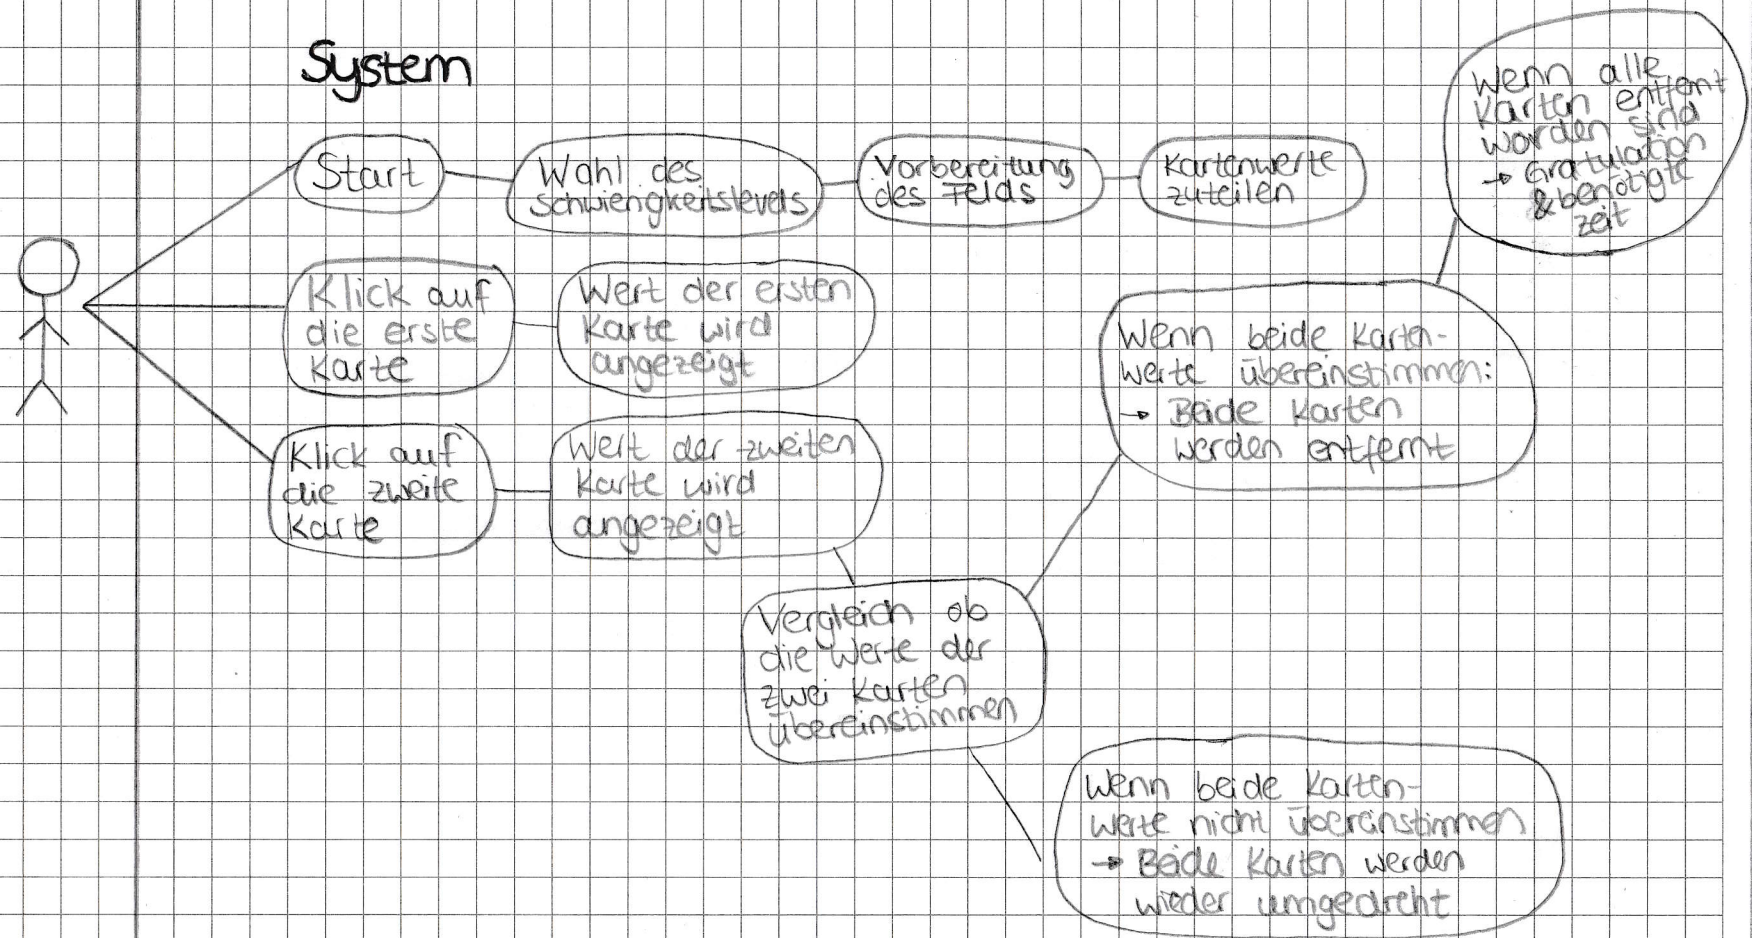 System
Start
Wahl des
Schwierigkeitslevels
Vorbereitung
des Felds
Kartenwerte
zuteilen
Wenn alle
Karten entfernt
worden sind
→ Gratulation
& benötigte
zeit
Klick auf
die erste
Karte
Wert der ersten
Karte wird
angezeigt
Wenn beide Karten-
werte übereinstimmen:
→ Beide Karten
werden entfernt
Klick auf
die zweite
Karte
Wert der zweiten
Karte wird
angezeigt
Vergleich ob
die Werte der
zwei Karten
übereinstimmen
Wenn beide Karten-
werte nicht übereinstimmen
→ Beide Karten werden
wieder umgedreht